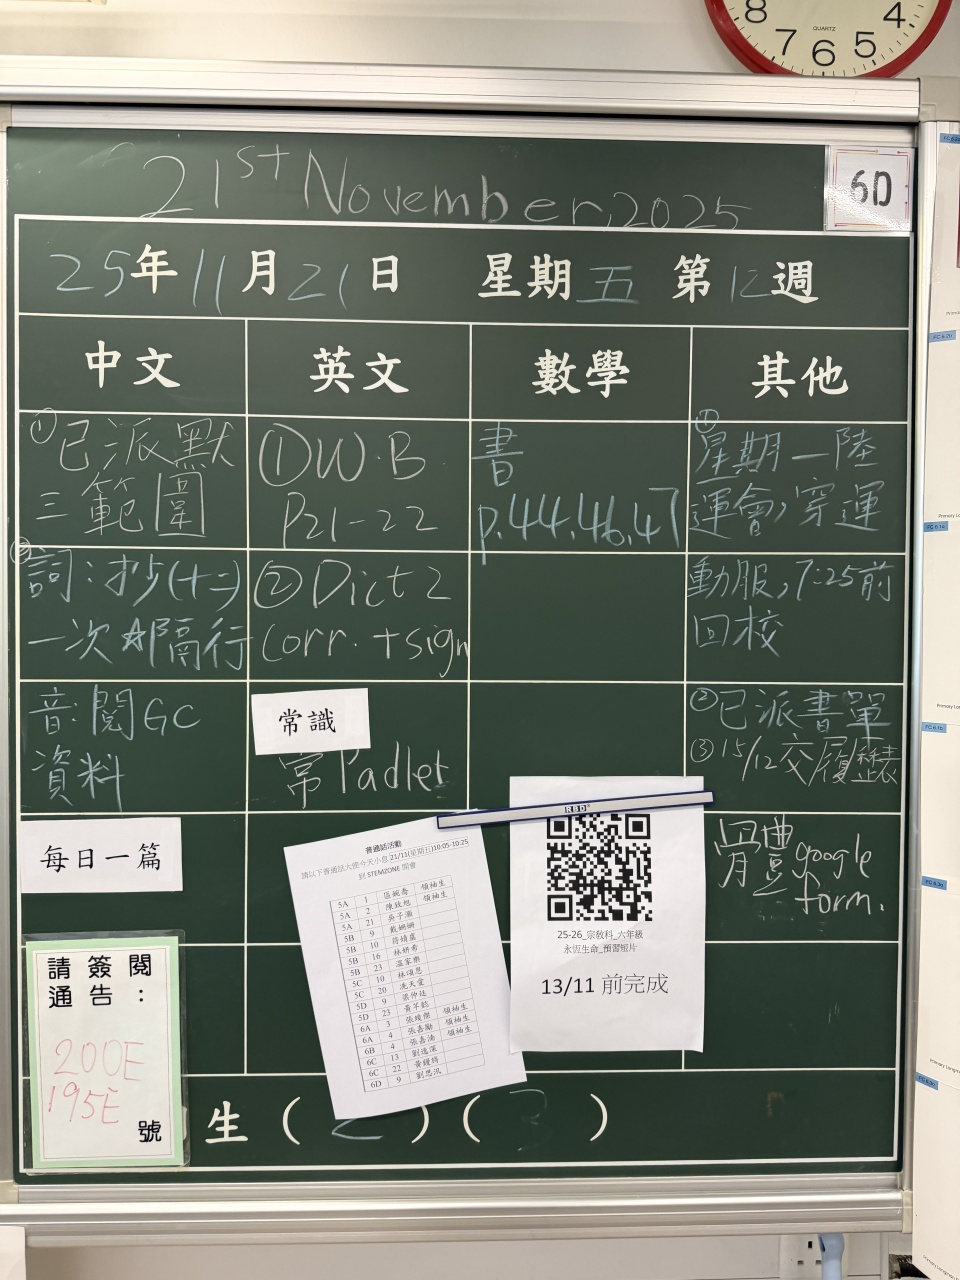 8
4
7
6
5
QUARTZ
21st November, 2025
6D
25年11月21日 星期五 第12週
中文
英文
數學
其他
①已派默
三範圍
②詞:抄(十二)
一次 隔行
音:閱GC
資料
每日一篇
①W.B
P21-22
②Dict 2
corr. + sign
常識
常 Padlet
書
p.44.46.47
①星期一陸
運會,穿運
動服,7:25前
回校
②已派書單
③15/12交履歷表
google
form.
請簽閱
通告:
200E
195E
號
普通話活動
請以下普通話大使今天小息21/11(星期五)10:05-10:25
到 STEMZONE 開會
5A 1 領袖生
5A 2 領袖生
5A 21 吳子灝
5B 9 戴姍姍
5B 10
5B 16 林妍希
5B 23 溫家樂
5C 10 林頌恩
5C 20 冼天愛
5D 9
5D 23
6A 3 領袖生
6A 4 張嘉勵 領袖生
6B 4 張嘉涵 領袖生
6C 13 劉逸深
6C 22
6D 9 劉思汛
RBD
25-26_宗教科_六年級
永恆生命_預習短片
13/11 前完成
生 ( 2 ) ( 3 )